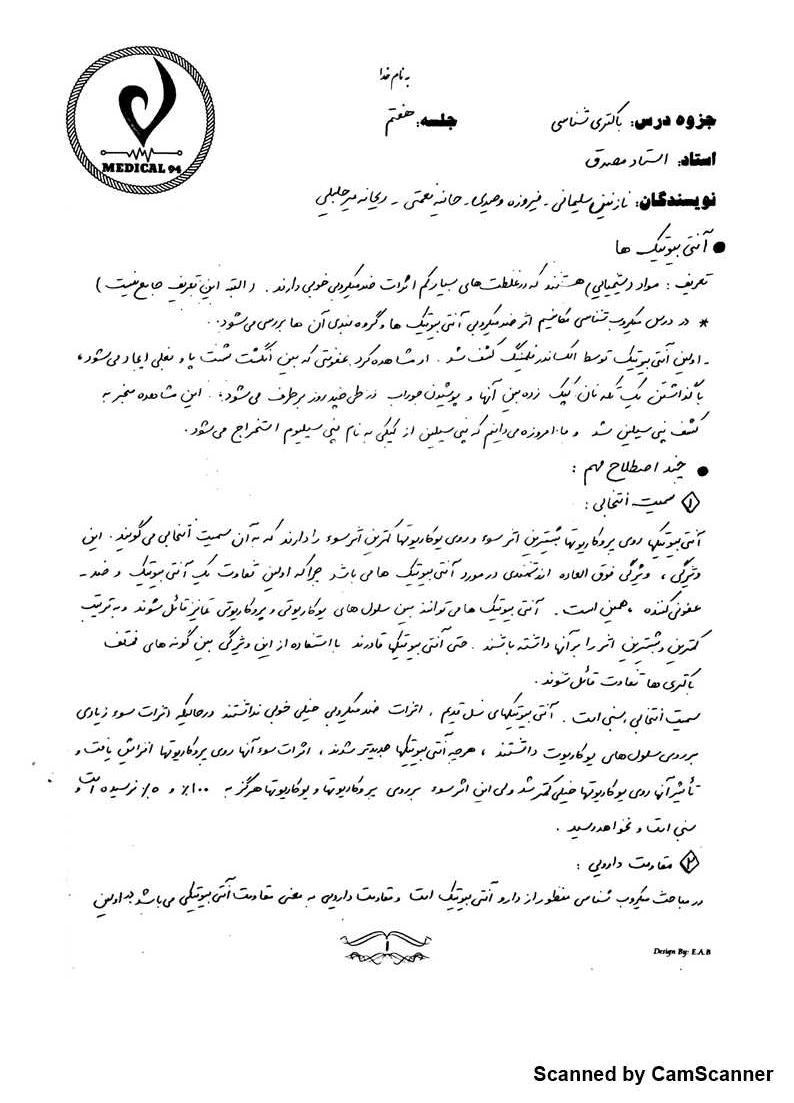 به نام خدا
جزوه درس: باکتری شناسی جلسه: هفتم
MEDICAL 94
استاد: استاد مصدق
نویسندگان: نازنین سلیمانی - فیروزه وحیدی - حانیه نعمتی - ریحانه میرجلیلی
● آنتی بیوتیک ها
تعریف : مواد (شیمیایی) هستند که در غلظت های بسیار کم اثرات ضد میکروبی خوبی دارند . ( البته این تعریف جامع نیست )
* در درس میکروب شناسی مکانیم اثر ضد میکروبی آنتی بیوتیک ها و گروه بندی آن ها بررسی می شود .
- اولین آنتی بیوتیک توسط الکساندر فلمینگ کشف شد . او مشاهده کرد عفونتی که بین انگشت شست پا و بغلی ایجاد می شود ،
با گذاشتن یک تکه نان کپک زده بین آنها و پوشیدن جوراب در طی چند روز برطرف می شود ؛ . این مشاهده منجر به
کشف پنی سیلین شد و ما امروزه می دانیم که پنی سیلین از کپکی به نام پنی سیلیوم استخراج می شود .
● چند اصطلاح مهم :
۱ سمیت انتخابی :
آنتی بیوتیکها روی پروکاریوتها بیشترین اثر سوء و روی یوکاریوتها کمترین اثر سوء را دارند که به آن سمیت انتخابی می گویند . این
ویژگی ، ویژگی فوق العاده ارزشمندی در مورد آنتی بیوتیک ها می باشد چرا که اولین تفاوت یک آنتی بیوتیک و ضد -
عفونی کننده ، همین است . آنتی بیوتیک ها می توانند بین سلول های یوکاریوتی و پروکاریوتی تمایز قائل شوند و به ترتیب
کمترین و بیشترین اثر را بر آنها داشته باشند . حتی آنتی بیوتیکها قادرند با استفاده از این ویژگی بین گونه های مختلف
باکتری ها تفاوت قائل شوند .
سمیت انتخابی ، نسبی است . آنتی بیوتیکهای نسل قدیم ، اثرات ضد میکروبی خیلی خوبی نداشتند در حالیکه اثرات سوء زیادی
بر روی سلول های یوکاریوت داشتند ، هر چه آنتی بیوتیکها جدیدتر شوند ، اثرات سوء آنها روی پروکاریوتها افزایش یافت و
تأثیر آنها روی یوکاریوتها خیلی کمتر شد ولی این اثر سوء بر روی پروکاریوتها و یوکاریوتها هرگز به ۱۰۰٪ و ۰٪ نرسیده است و
نسبی است و نخواهد رسید .
۲ مقاومت دارویی :
در مباحث میکروب شناسی منظور از دارو آنتی بیوتیک است و مقاومت دارویی به معنی مقاومت آنتی بیوتیکی می باشد . به اولین
۱
Design By: E.A.B
Scanned by CamScanner